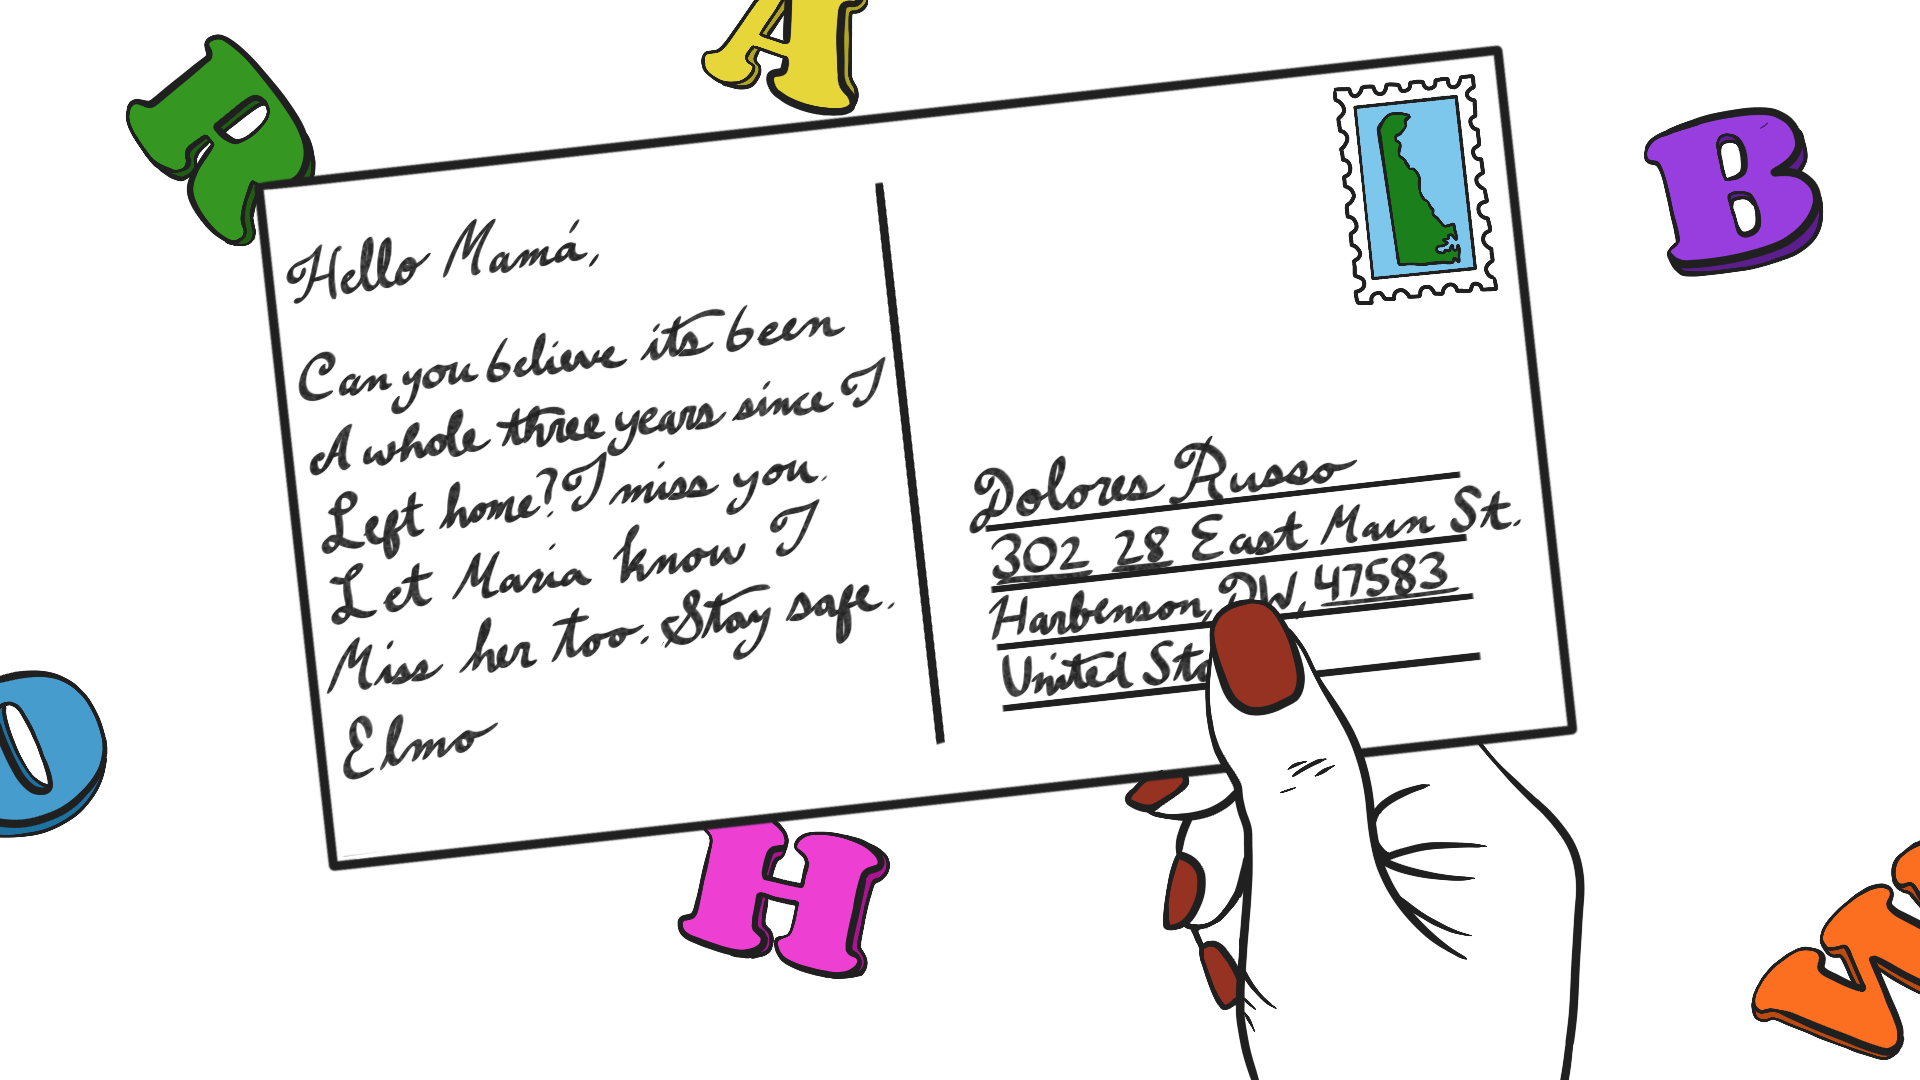 A
R
B
Hello Mamá,
Can you believe its been
A whole three years since I
Left home? I miss you.
Let Maria know I
Miss her too. Stay safe.
Elmo
Dolores Russo
302 28 East Main St.
Harbenson, DW, 47583
United Sta
O
H
W